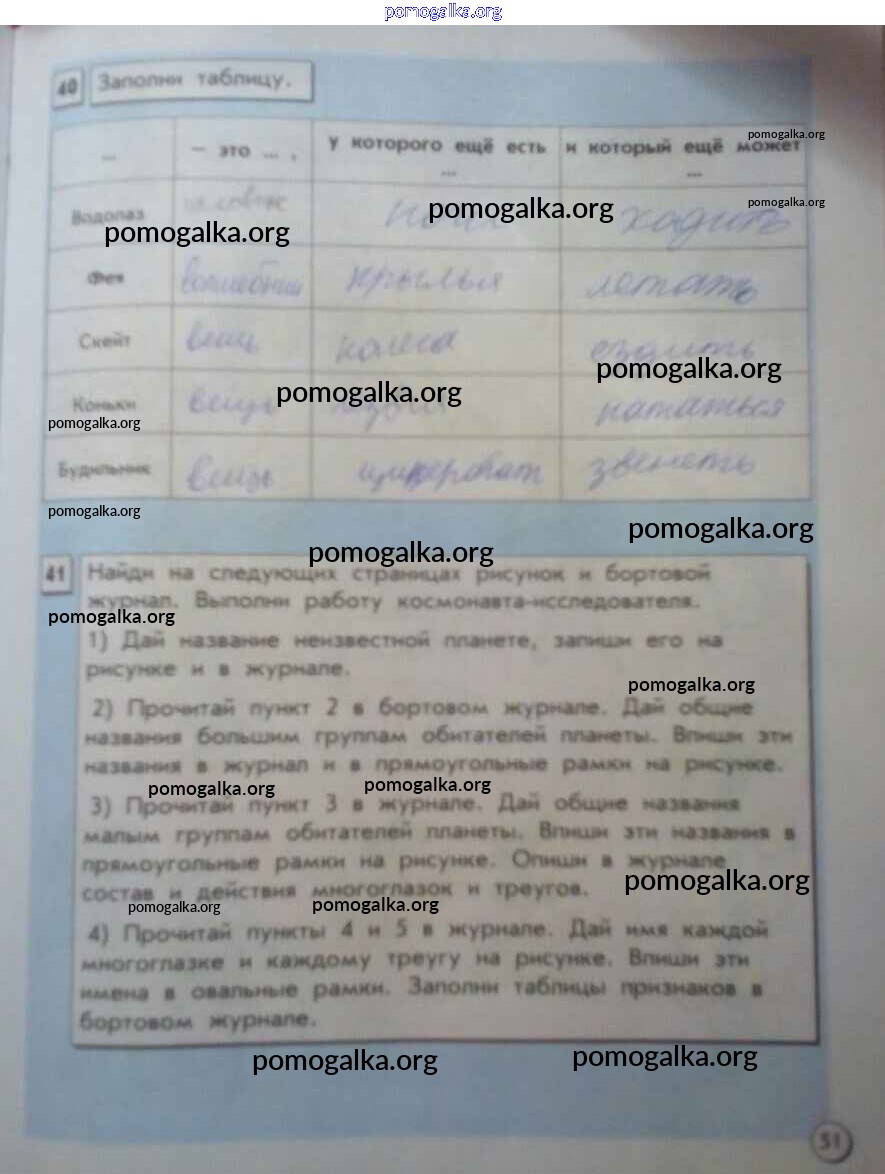 pomogalka.org
40 Заполни таблицу.
... – это ... , у которого ещё есть ... и который ещё может ...
pomogalka.org
Водолаз ходить
pomogalka.org
pomogalka.org
pomogalka.org
Фея крылья летать
Скейт вещь колеса ездить
pomogalka.org
pomogalka.org
Коньки вещь кататься
pomogalka.org
Будильник вещь циферблат звенеть
pomogalka.org
pomogalka.org
pomogalka.org
41 Найди на следующих страницах рисунок и бортовой
журнал. Выполни работу космонавта-исследователя.
pomogalka.org
1) Дай название неизвестной планете, запиши его на
рисунке и в журнале.
pomogalka.org
2) Прочитай пункт 2 в бортовом журнале. Дай общие
названия большим группам обитателей планеты. Впиши эти
названия в журнал и в прямоугольные рамки на рисунке.
pomogalka.org
pomogalka.org
3) Прочитай пункт 3 в журнале. Дай общие названия
малым группам обитателей планеты. Впиши эти названия в
прямоугольные рамки на рисунке. Опиши в журнале
pomogalka.org
состав и действия многоглазок и треугов.
pomogalka.org
pomogalka.org
4) Прочитай пункты 4 и 5 в журнале. Дай имя каждой
многоглазке и каждому треугу на рисунке. Впиши эти
имена в овальные рамки. Заполни таблицы признаков в
бортовом журнале.
pomogalka.org
pomogalka.org
51